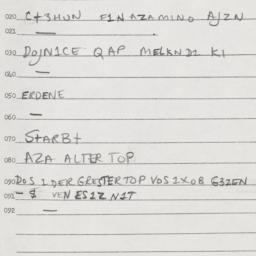 020 C+3HUN F1NAZAMINO AJZN
021 —
030 DOJN1CE QAP MELKND1 K1
040 —
050 ERDENE
060 —
070 STARB+
080 AZA ALTER TOP
090 DOS 1 DER GRESTER TOP VOS 1X0B G3ZEN
091 - $ VEN ES1Z N1T
092 —